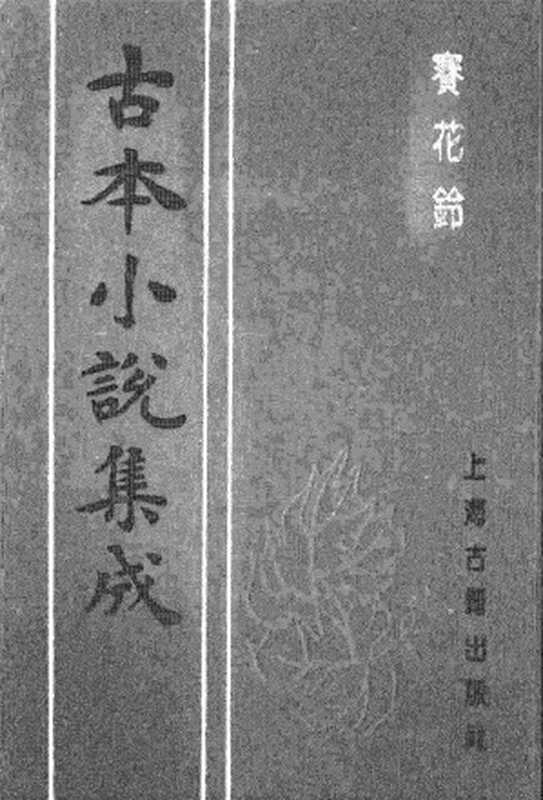 賽花鈴
上海古籍出版社
古本小說集成